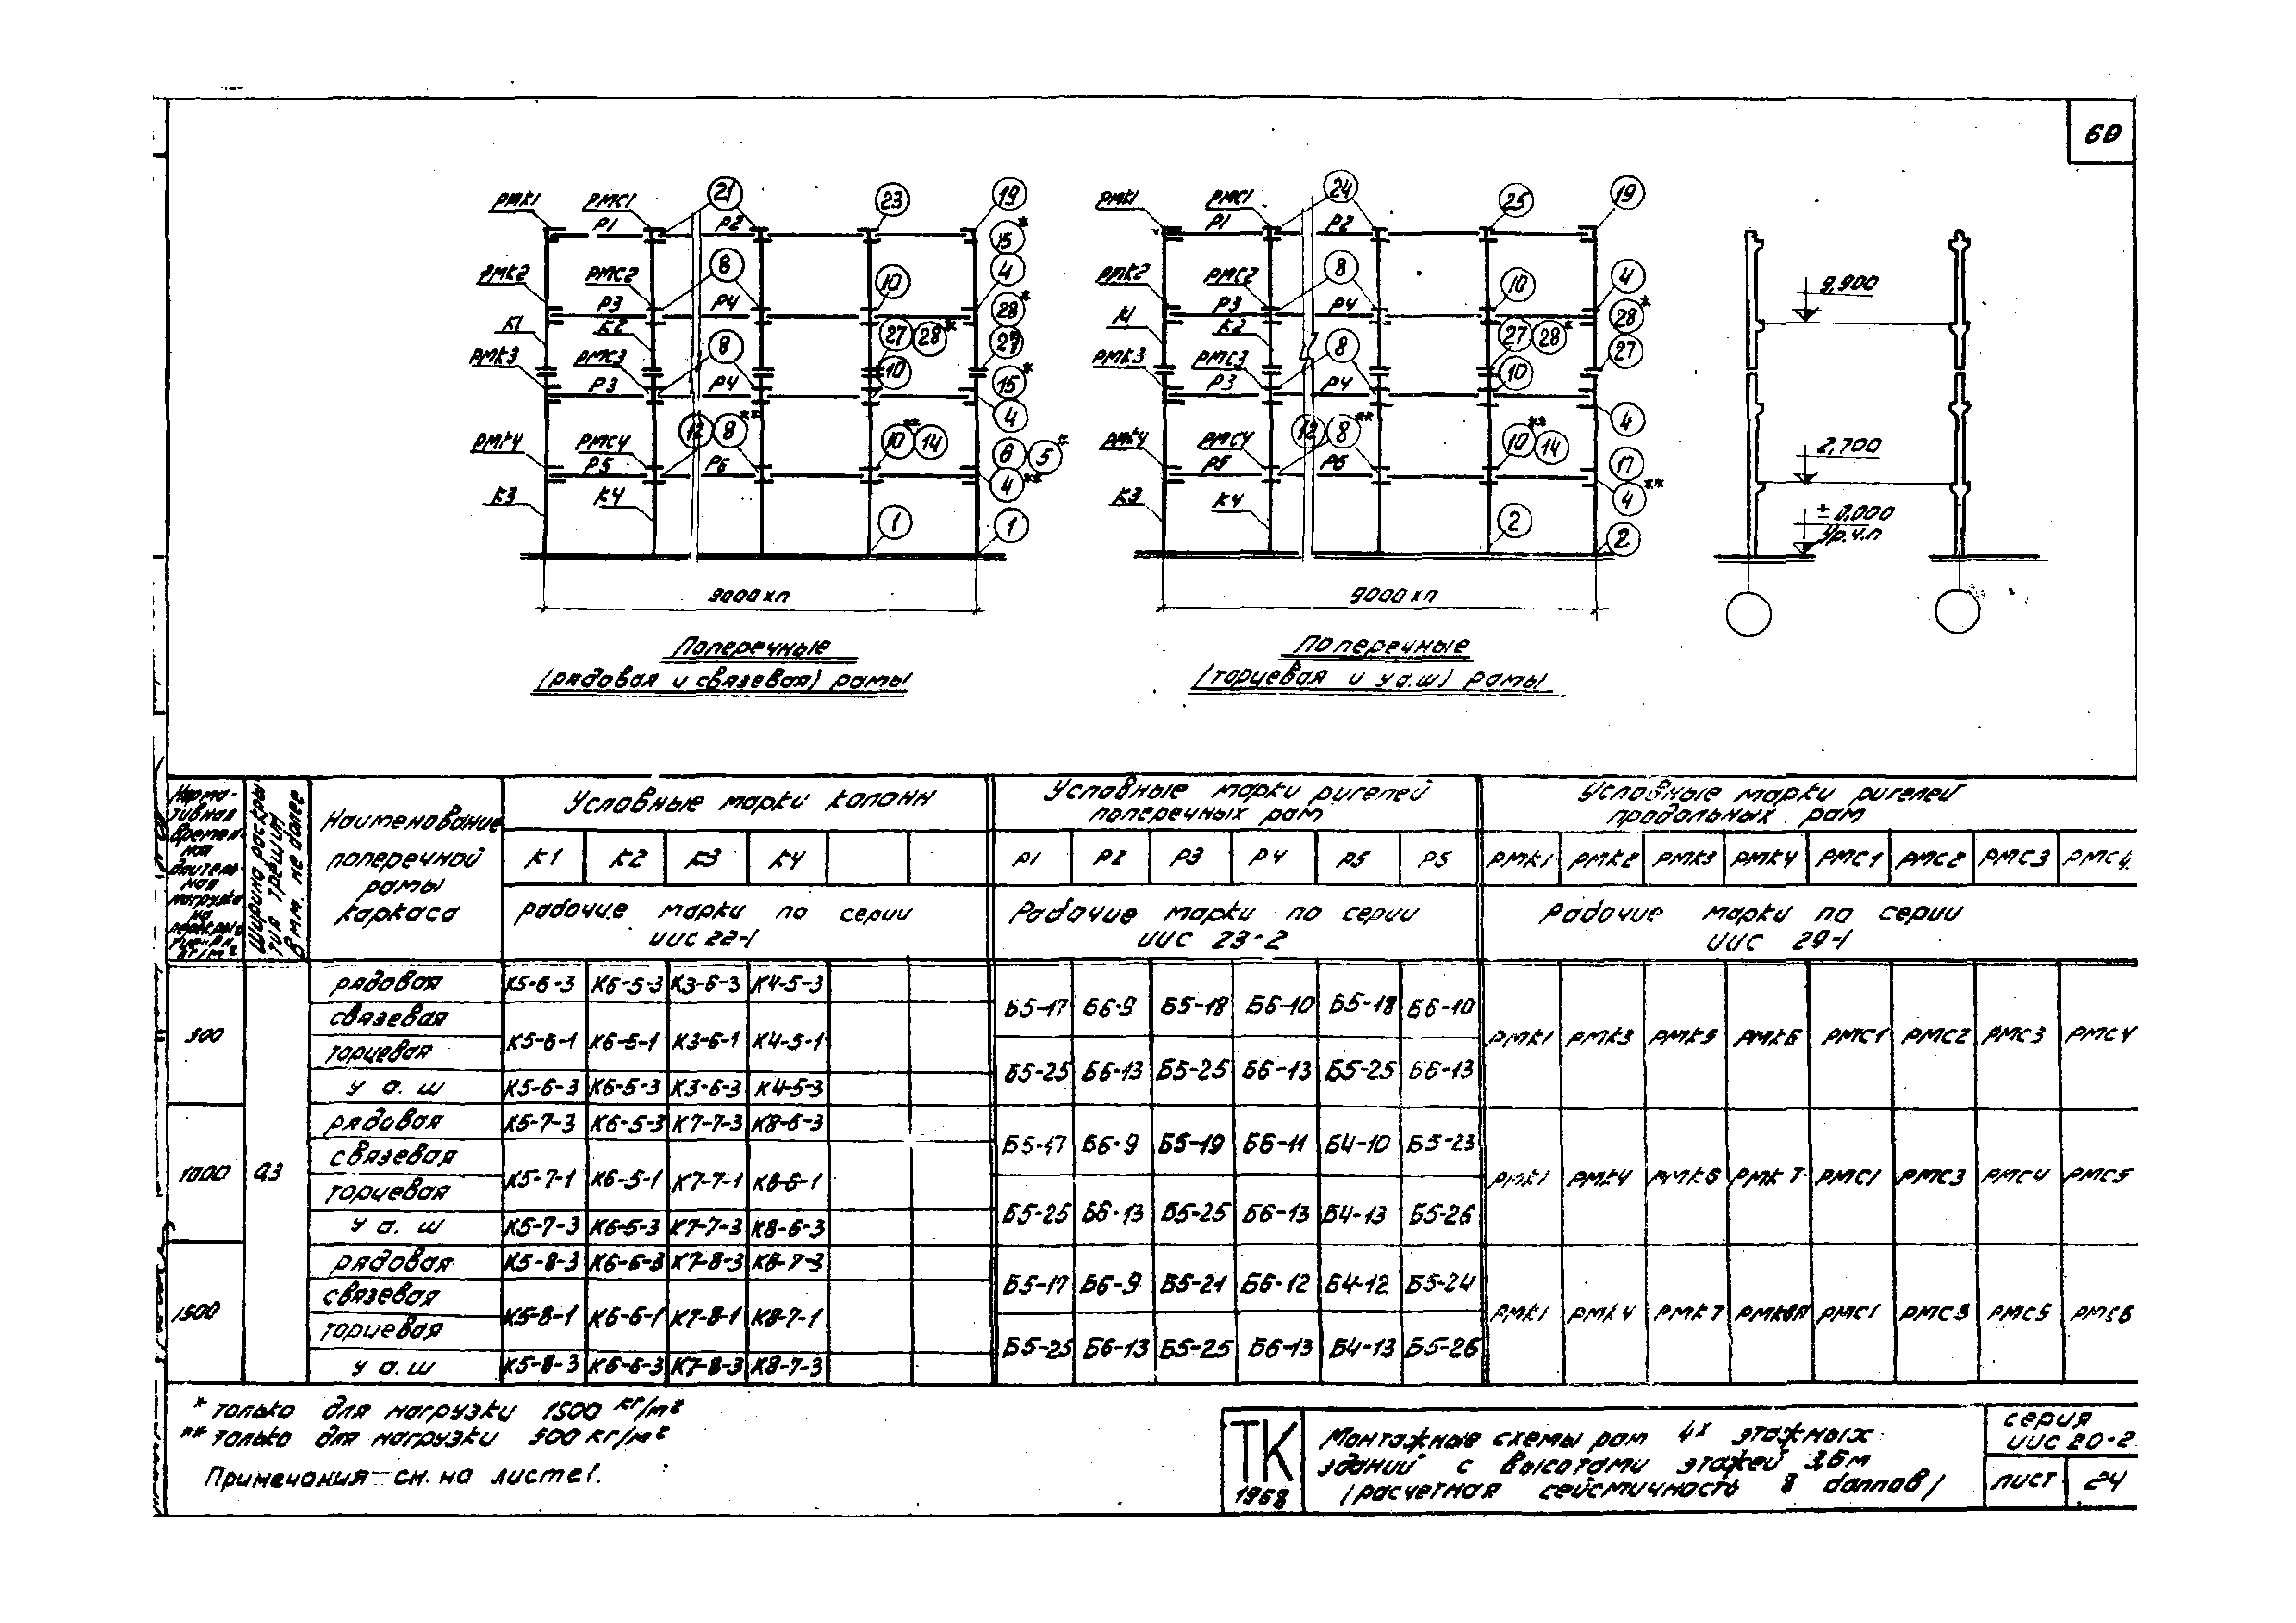 60
РМК1 РМС1 21 23 19
Р1 Р2 15*
РМК2 РМС2 8 10 4
Р3 Р4 28*
К1 К2 27 28* 27
РМК3 РМС3 8 10 15*
Р3 Р4 4
РМК4 РМС4 12 8** 10** 14 6 5*
Р5 Р6 4**
К3 К4 1 1
9000хп
Поперечные
(рядовая и связевая) рамы
РМК1 РМС1 24 25 19
Р1 Р2
РМК2 РМС2 8 10 4
Р3 Р4 28*
К1 К2 27 28* 27
РМК3 РМС3 8 10
Р3 Р4 4
РМК4 РМС4 12 8** 10** 14 17
Р5 Р6 4**
К3 К4 2 2
9000хп
Поперечные
(торцевая и у а.ш) рамы
9,900
2,700
±0,000
Ур.ч.п
Норма-
тивная
времен-
ная
длитель-
ная
нагрузка
на
кг/м²
Ширина раскры
тия трещин
в мм. не более
Наименование
поперечной
рамы
каркаса
Условные марки колонн
К1 К2 К3 К4
Рабочие марки по серии
ИИС 22-1
Условные марки ригелей
поперечных рам
Р1 Р2 Р3 Р4 Р5 Р5
Рабочие марки по серии
ИИС 23-2
Условные марки ригелей
продольных рам
РМК1 РМК2 РМК3 РМК4 РМС1 РМС2 РМС3 РМС4
Рабочие марки по серии
ИИС 29-1
500
рядовая К5-6-3 К6-5-3 К3-6-3 К4-5-3
связевая
торцевая
К5-6-1 К6-5-1 К3-6-1 К4-5-1
у а.ш К5-6-3 К6-5-3 К3-6-3 К4-5-3
Б5-17 Б6-9 Б5-18 Б6-10 Б5-18 Б6-10
Б5-25 Б6-13 Б5-25 Б6-13 Б5-25 Б6-13
РМК1 РМК3 РМК5 РМК6 РМС1 РМС2 РМС3 РМС4
1000 0,3
рядовая К5-7-3 К6-5-3 К7-7-3 К8-6-3
связевая
торцевая
К5-7-1 К6-5-1 К7-7-1 К8-6-1
у а.ш К5-7-3 К6-5-3 К7-7-3 К8-6-3
Б5-17 Б6-9 Б5-19 Б6-11 Б4-10 Б5-23
Б5-25 Б6-13 Б5-25 Б6-13 Б4-13 Б5-26
РМК1 РМК4 РМК6 РМК7 РМС1 РМС3 РМС4 РМС5
1500
рядовая К5-8-3 К6-6-3 К7-8-3 К8-7-3
связевая
торцевая
К5-8-1 К6-6-1 К7-8-1 К8-7-1
у а.ш К5-8-3 К6-6-3 К7-8-3 К8-7-3
Б5-17 Б6-9 Б5-21 Б6-12 Б4-12 Б5-24
Б5-25 Б6-13 Б5-25 Б6-13 Б4-13 Б5-26
РМК1 РМК4 РМК7 РМС1 РМС3 РМС5 РМС6
* только для нагрузки 1500 кг/м²
** только для нагрузки 500 кг/м²
Примечания см. на листе 1.
ТК
1968
Монтажные схемы рам 4х этажных
зданий с высотами этажей 3,6м
(расчетная сейсмичность 8 баллов)
серия
ИИС 20-2
лист 24